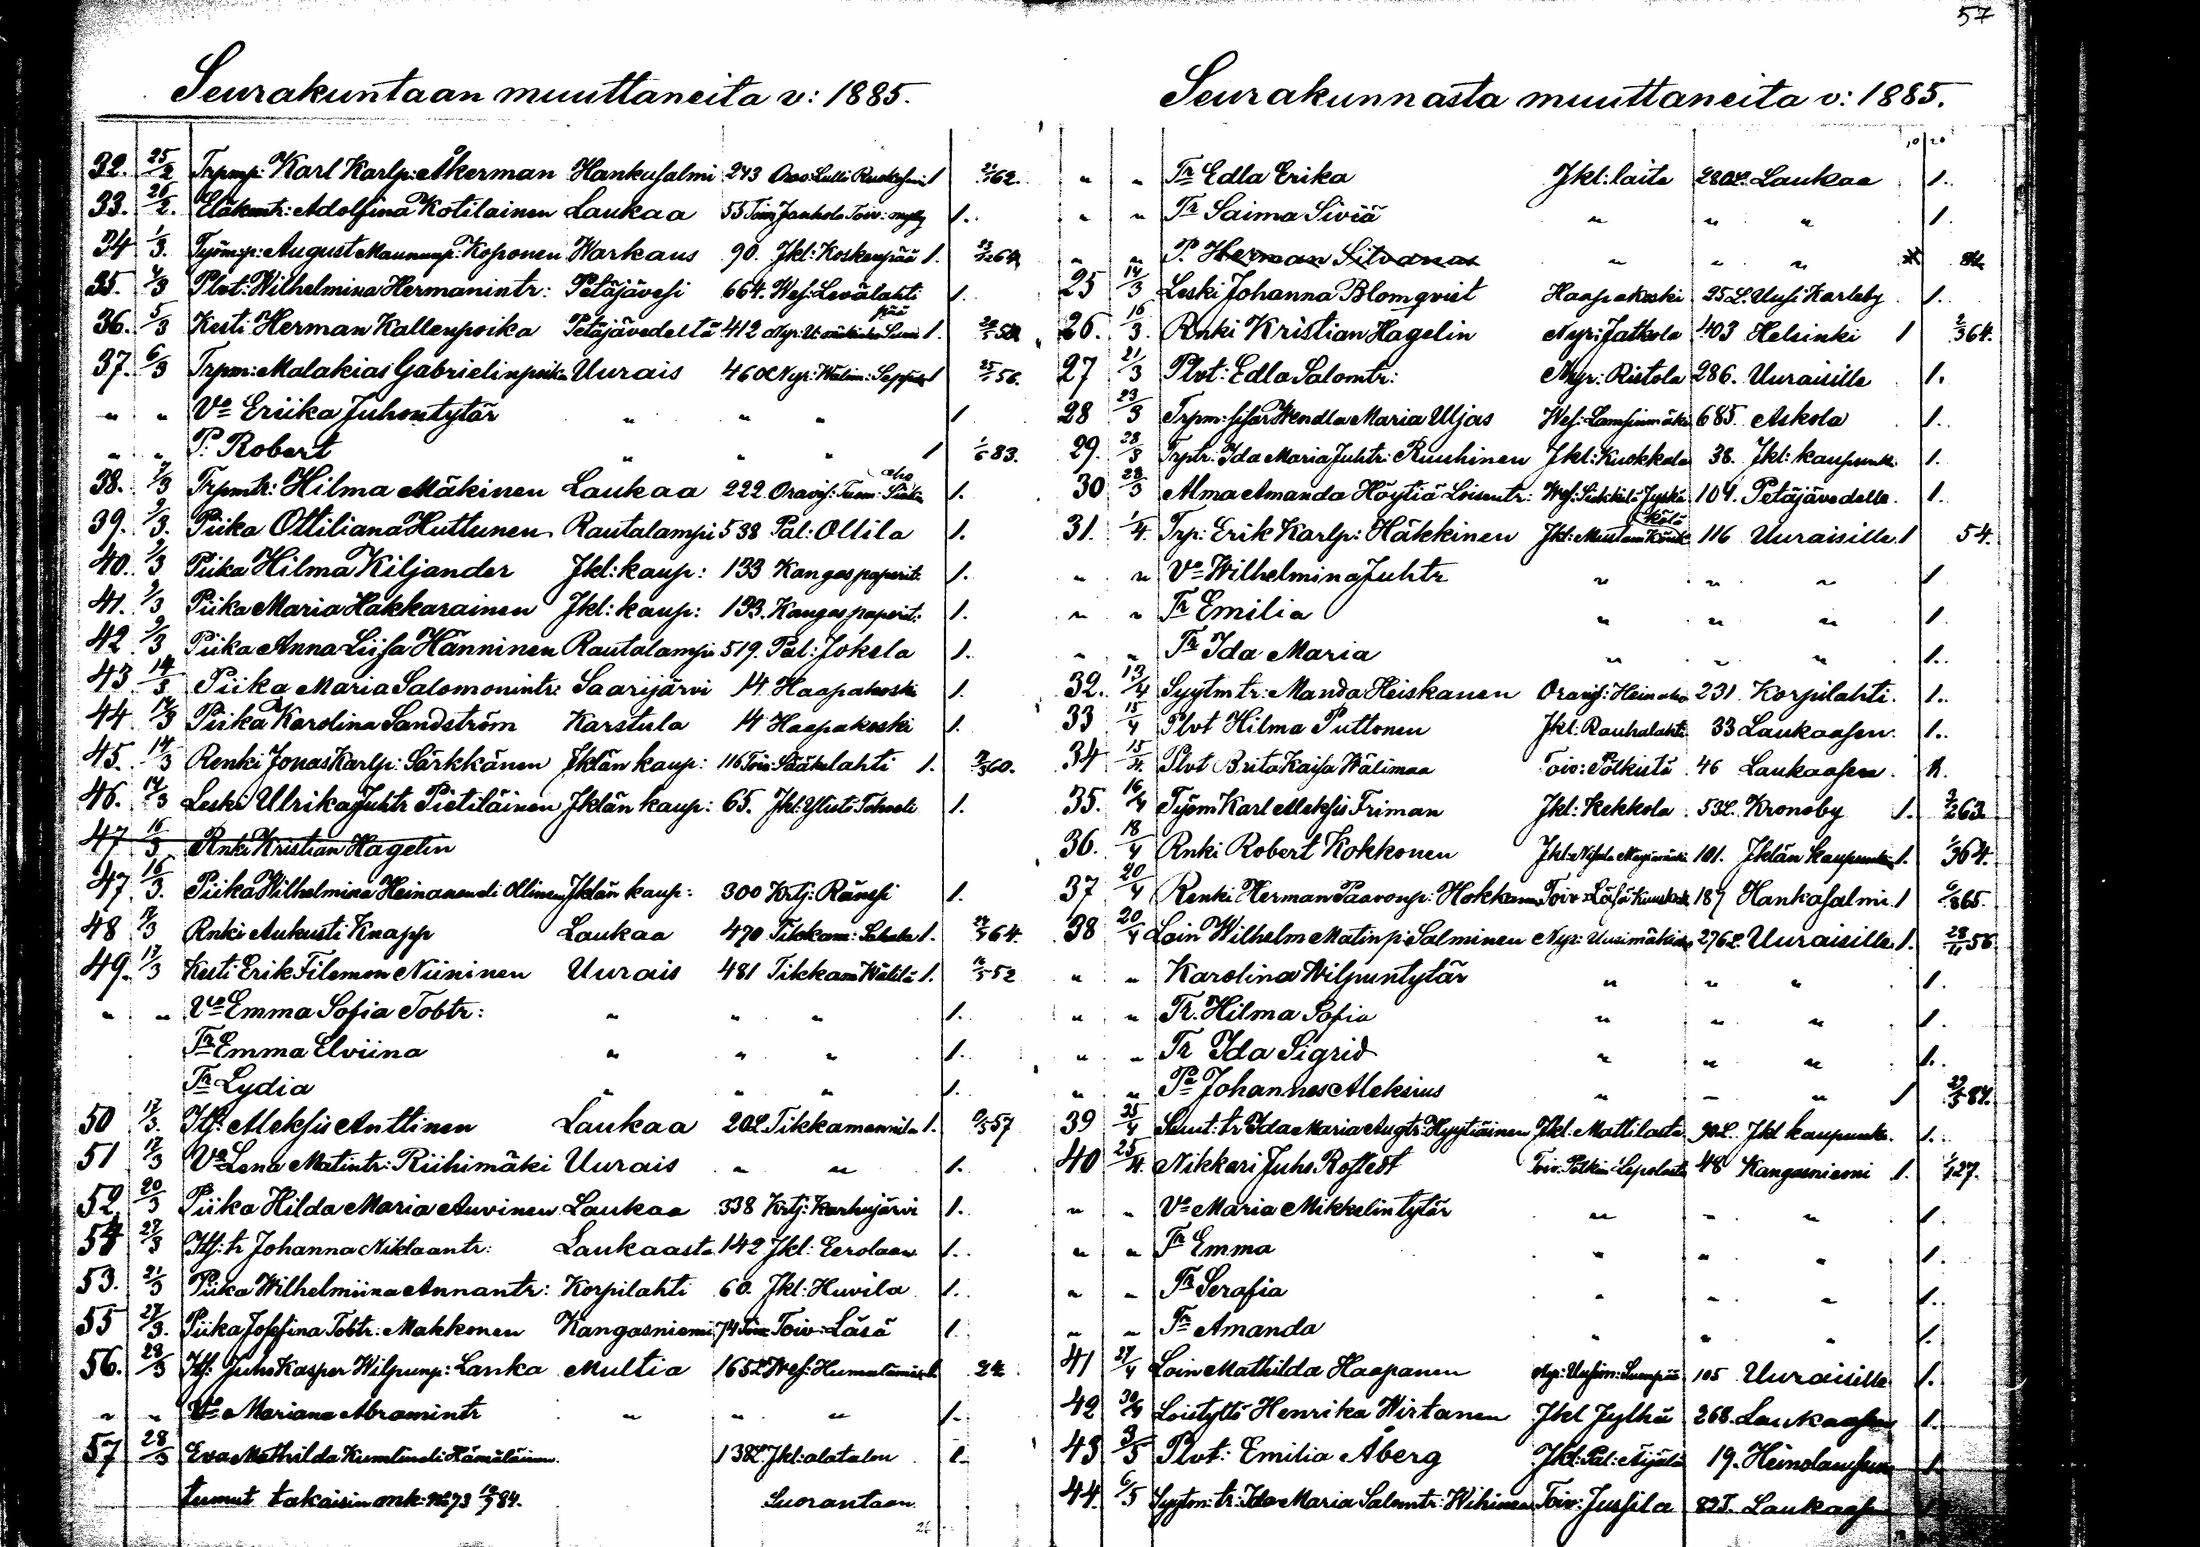 57
Seurakuntaan muuttaneita v: 1885.
32. 25/2 Trpmp: Karl Karlp: Åkerman Hankasalmi 243 1 62.
33. 26/2. Eläkmtr: Adolfina Kotilainen Laukaa 55 1.
34 1/3. Työmp: August Maununp: Koponen Warkaus 90. Jkl: Koskenpää 1. 64
35. 4/3 Plvt: Wilhelmina Hermanintr: Petäjävesi 664. Wes: Levälahti 1.
36. 5/3 Kesti Herman Kallenpoika Petäjävedeltä 412 1.
37. 6/3 Trpm: Malakias Gabrielinpoika Uurais 460 1 56.
" " Vo Eriika Juhontytär " " " 1
" " P. Robert " " " 1 1/6 83.
38. 7/3 Trpmtr: Hilma Mäkinen Laukaa 222. 1.
39. 9/3. Piika Ottiliana Huttunen Rautalampi 538 Pal: Ollila 1.
40. 9/3 Piika Hilma Kiljander Jkl: kaup: 133 Kangas paperit: 1.
41. 9/3 Piika Maria Hakkarainen Jkl: kaup: 133. Kangas paperit: 1.
42 9/3 Piika Anna Liisa Hänninen Rautalampi 519. Pal: Jokela 1.
43 14/3 Piika Maria Salomonintr: Saarijärvi 14. Haapakoski 1.
44. 14/3 Piika Karolina Sandström Karstula 14 Haapakoski 1.
45. 14/3 Renki Jonas Karlp: Särkkänen Jklän kaup: 116 1. 60.
46. 14/3 Leski Ulrika Juhtr Pietiläinen Jklän kaup: 65. 1.
47 16/3 Rnki Kristian Hagelin
47 16/3. Piika Wilhelmina Heinanen Jklän kaup: 300 Krtj: Ränssi 1.
48 17/3 Rnki Aukusti Knapp Laukaa 470 1. 64.
49. 17/3 Kesti Erik Filemon Niininen Uurais 481 Tikkam: Wätilä 1. 52
" " Vo Emma Sofia Tobtr: " " " 1.
Tr Emma Elviina " " " 1.
Tr Lydia " " " 1.
50 17/3. Itf: Aleksis Anttinen Laukaa 20L. Tikkamannila 1. 57
51 17/3 Vo Lena Matintr: Riihimäki Uurais " " 1.
52. 20/3 Piika Hilda Maria Auvinen Laukaa 338 Krtj: Karhujärvi 1.
54 27/3 Itf: tr Johanna Niklaantr: Laukaasta 142 Jkl: Eerolaan 1.
53. 21/3 Piika Wilhelmiina Annantr: Korpilahti 60. Jkl: Huvila 1.
55 27/3. Piika Josefina Tobtr: Makkonen Kangasniemi 74 Toiv: Läsä 1.
56. 28/3 Itf: Juho Kasper Wilpunp: Lanka Multia 165L 1. 24
" " Vo Mariana Abramintr " " " 1.
57 28/3 Eva Mathilda Hämäläinen 138L Jkl: alatalon 1.
tumut takaisin Suorantaan

Seurakunnasta muuttaneita v: 1885.
" " Tr Edla Erika Jkl: laita 280L Laukaa 1.
" " Tr Saima Siviä " " " 1.
" " P. Herman Silvanus " " "
25 14/3 Leski Johanna Blomqvist Haapakoski 25L. Uusi Karleby 1.
26. 16/3. Rnki Kristian Hagelin Nyr: Jatkola 403 Helsinki 1 64.
27 21/3 Plvt: Edla Salomtr: Nyr: Ristola 286. Uuraisille 1.
28 23/3 Wendla Maria Uljas 685. Askola 1.
29. 28/3 Trptr: Ida Maria Juhtr: Ruuhinen Jkl: Kuokkala 38. Jkl: kaupunk: 1.
30 28/3 Alma Amanda Höytiä Loisentr: 104. Petäjävedelle 1.
31. 1/4. Trp: Erik Karlp: Häkkinen 116 Uuraisille 1 54.
" " Vo Wilhelmina Juhtr " " " 1
" " Tr Emilia " " " 1.
" " Tr Ida Maria " " " 1.
32. 13/4 Syytmtr: Manda Heiskanen 231 Korpilahti. 1.
33 15/4 Plvt Hilma Puttonen Jkl: Rauhalahti 33 Laukaasen. 1.
34 15/4. Plvt Brita Kaisa Wälimaa Toiv: Pölkütä 46 Laukaasen. 1.
35. 16/4 Työm Karl Aleksis Friman Jkl: Kekkola 53L. Kronoby 1. 63.
36. 18/4 Rnki Robert Kokkonen 101. Jklän kaupunkiin 1. 64.
37 20/4 Renki Herman Paavonp: Hokkanen 187 Hankasalmi. 1 65.
38 20/4 Loin Wilhelm Matinp: Salminen 276L. Uuraisille 1. 28/11 56.
" " Karolina Wilpuntytär " " " 1.
" " Tr. Hilma Sofia " " " 1.
" " Tr Ida Sigrid " " " 1.
" " Po Johannes Aleksius " " " 1 84.
39 25/4 Ida Maria Augtr: Hyytiäinen Jkl: Mattilasta 90L. Jkl kaupunk: 1.
40 25/4. Nikkari Juho Rosstedt 48 Kangasniemi 1. 27.
" " Vo Maria Mikkelintytär " " " 1.
" " Tr Emma " " " 1.
" " Tr Serafia " " " 1.
" " Tr Amanda " " " 1.
41 27/4 Loin Mathilda Haapanen 105 Uuraisille 1.
42 30/4 Loistyttö Henrika Wirtanen Jkl Jylhä 268. Laukaasen 1.
43 3/5 Plvt: Emilia Åberg Jkl: Pal: Äijälä 19. Heinolan 1.
44. 6/5 Syytm: tr: Ida Maria Salomtr: Wihinen Toiv: Jussila Laukaasen